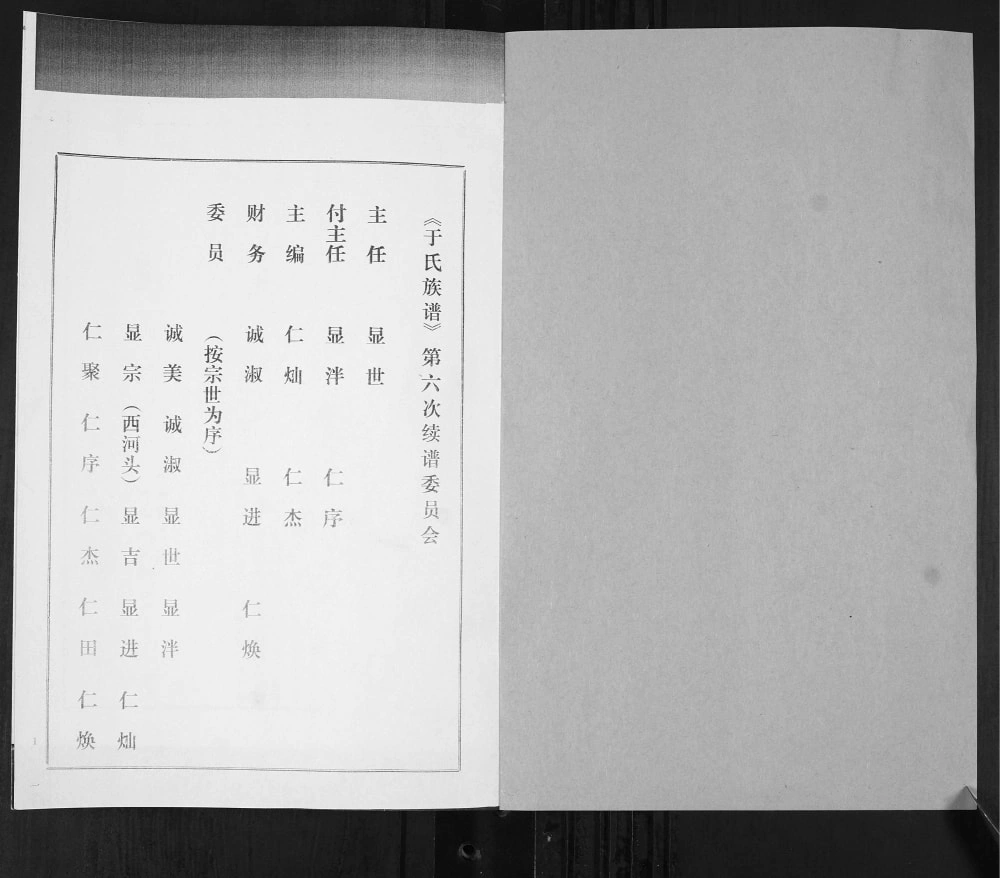 《于氏族谱》第六次续谱委员会
主任 显世
付主任 显泮 仁序
主编 仁灿 仁杰
财务 诚淑 显进 仁焕
委员 (按宗世为序)
诚美 诚淑 显世 显泮
显宗(西河头) 显吉 显进 仁灿
仁聚 仁序 仁杰 仁田 仁焕
1